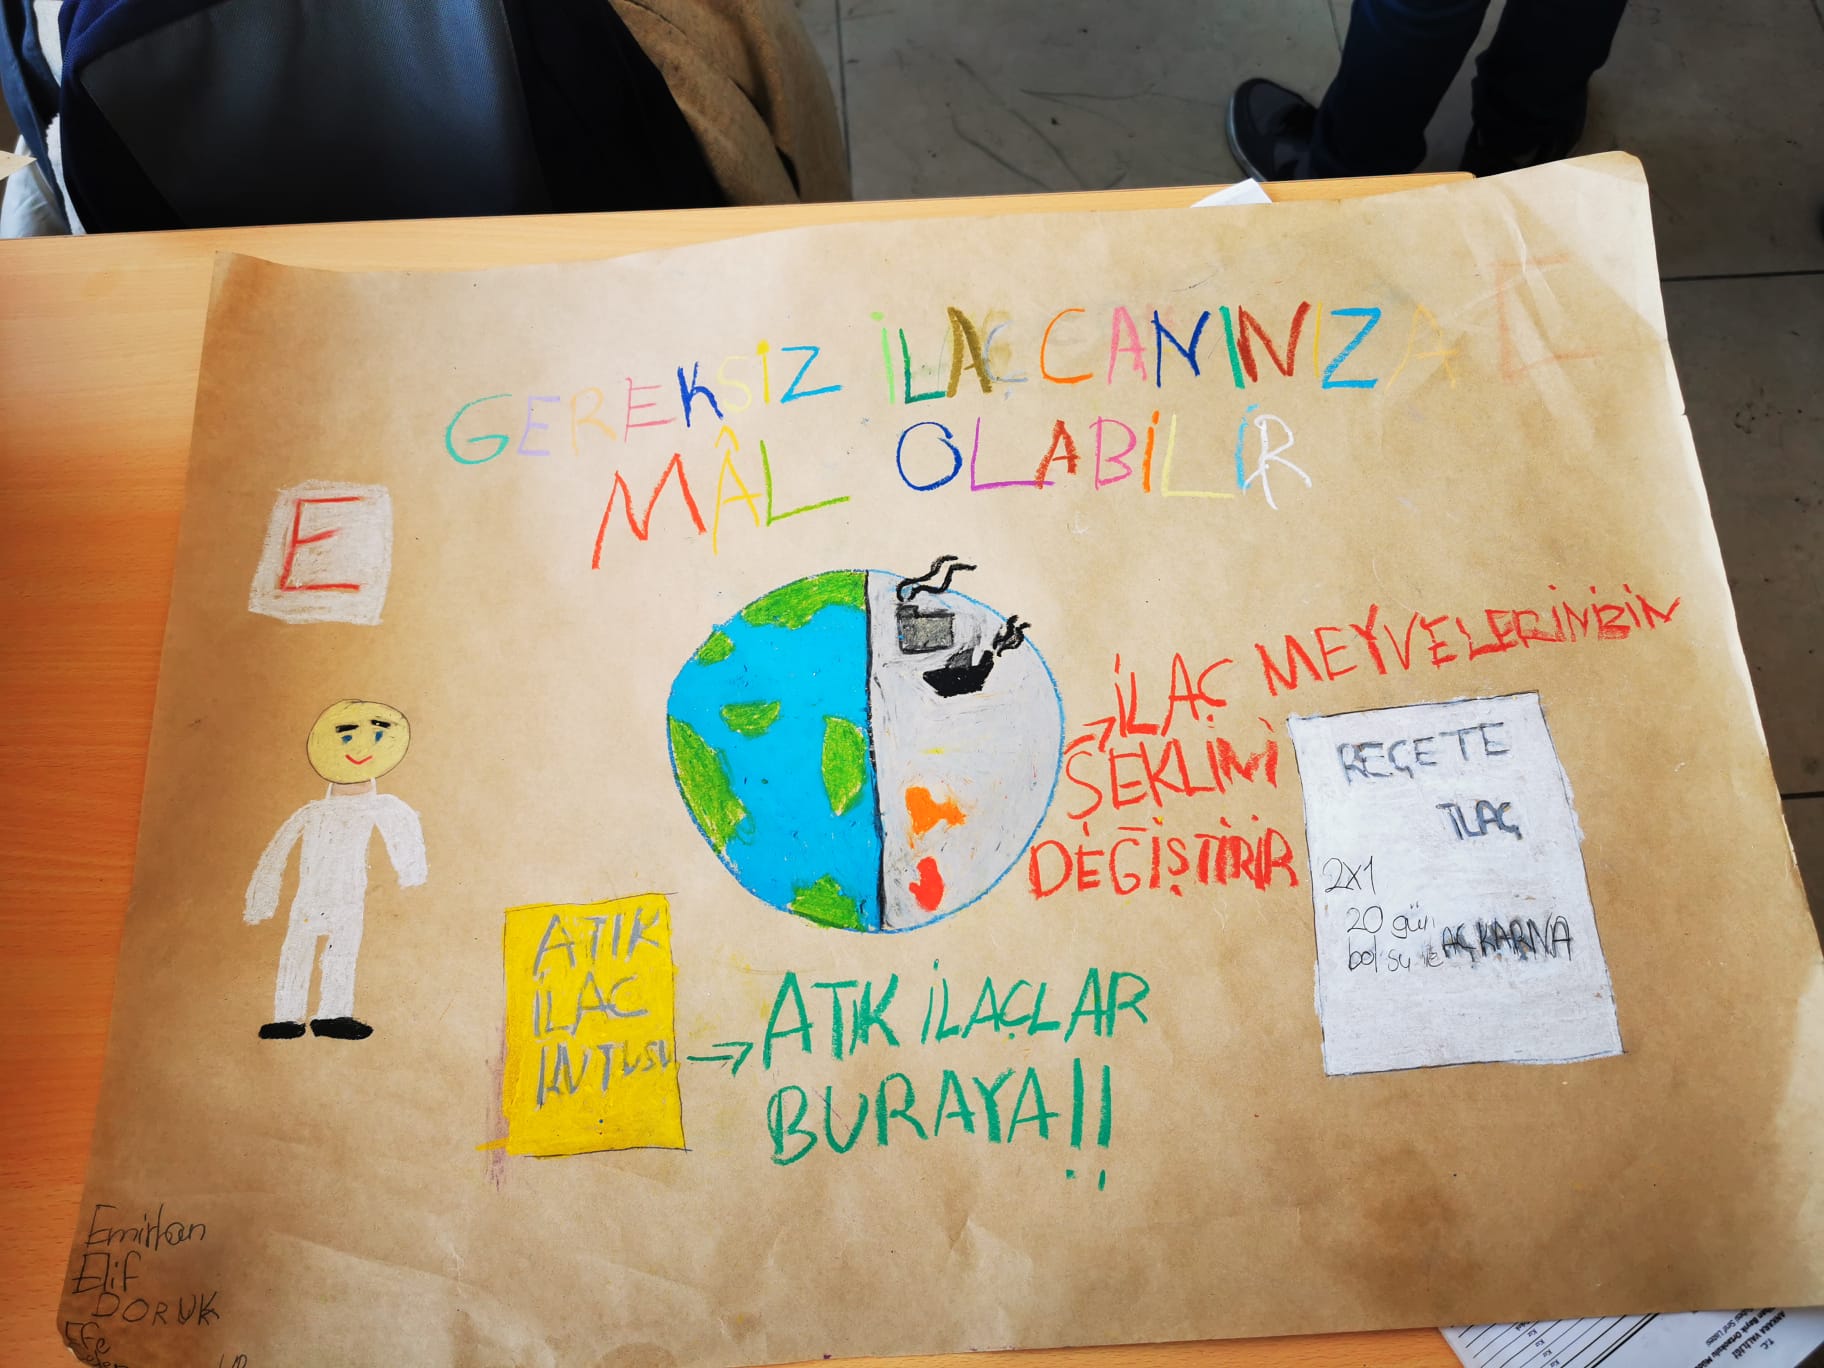 GEREKSİZ İLAÇ CANINIZA
MÂL OLABİLİR
E
E
İLAÇ MEYVELERİNİZİN
ŞEKLİNİ
DEĞİŞTİRİR
REÇETE
İLAÇ
2x1
20 gün
bol su ile AÇ KARNA
ATIK
İLAÇ
KUTUSU
ATIK İLAÇLAR
BURAYA!!
Emirhan
Elif
DORUK
Efe
T.C.
ANKARA VALİLİĞİ